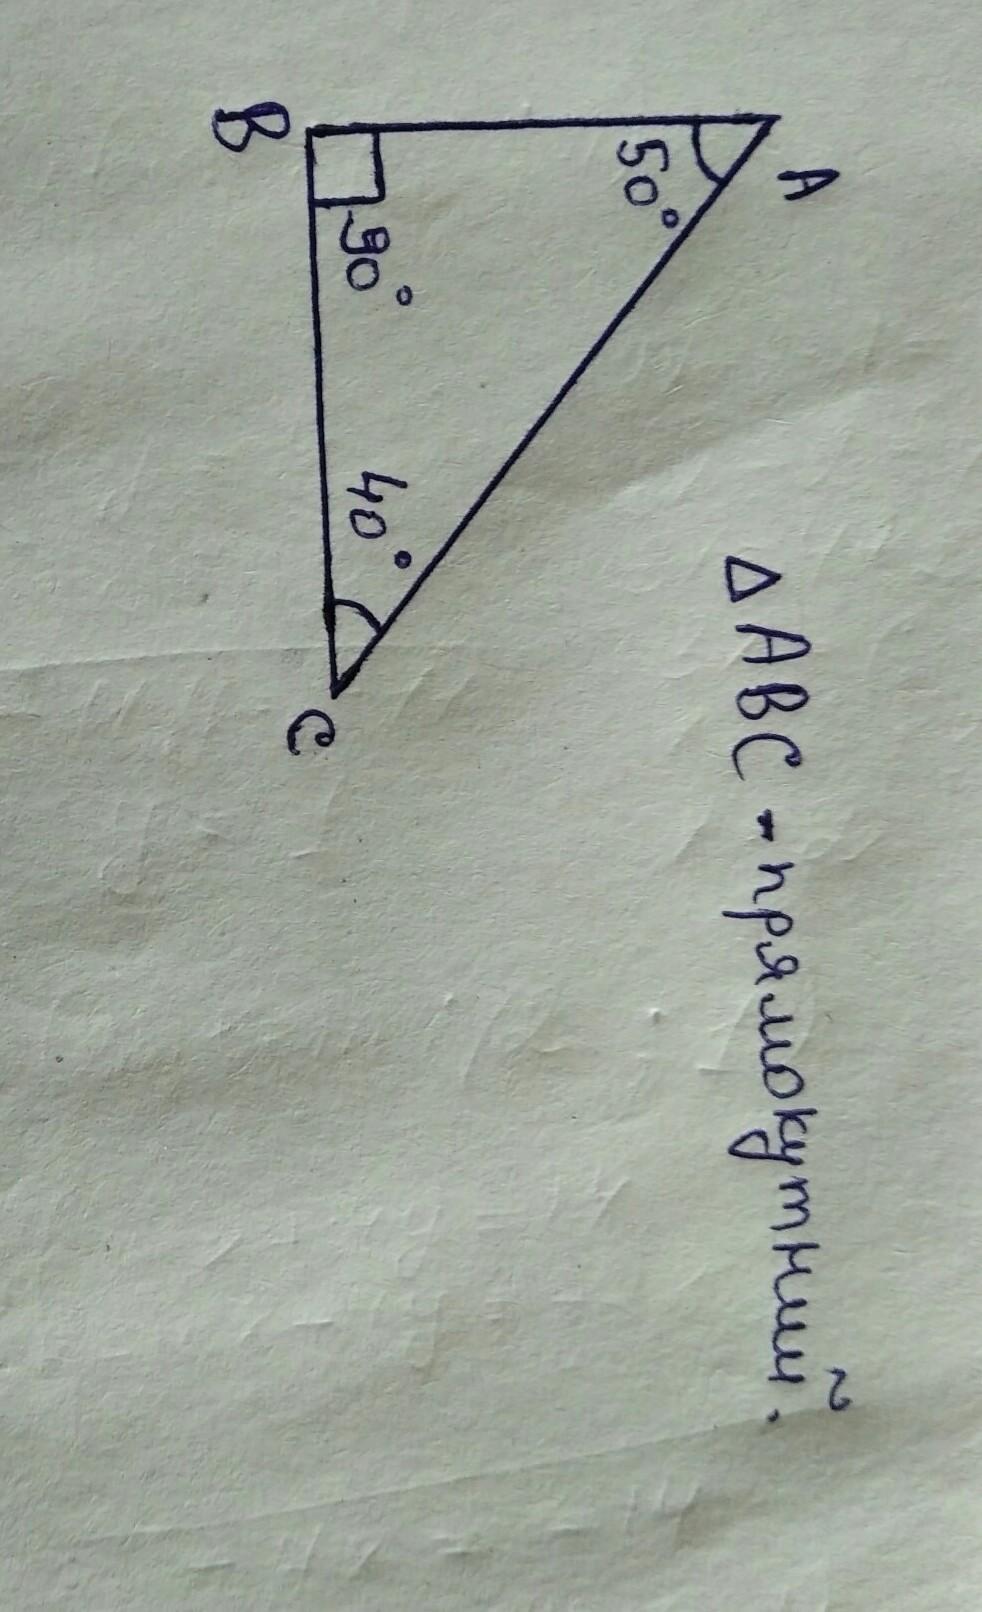 A
50°
B
90°
40°
C
△ABC - прямокутний.